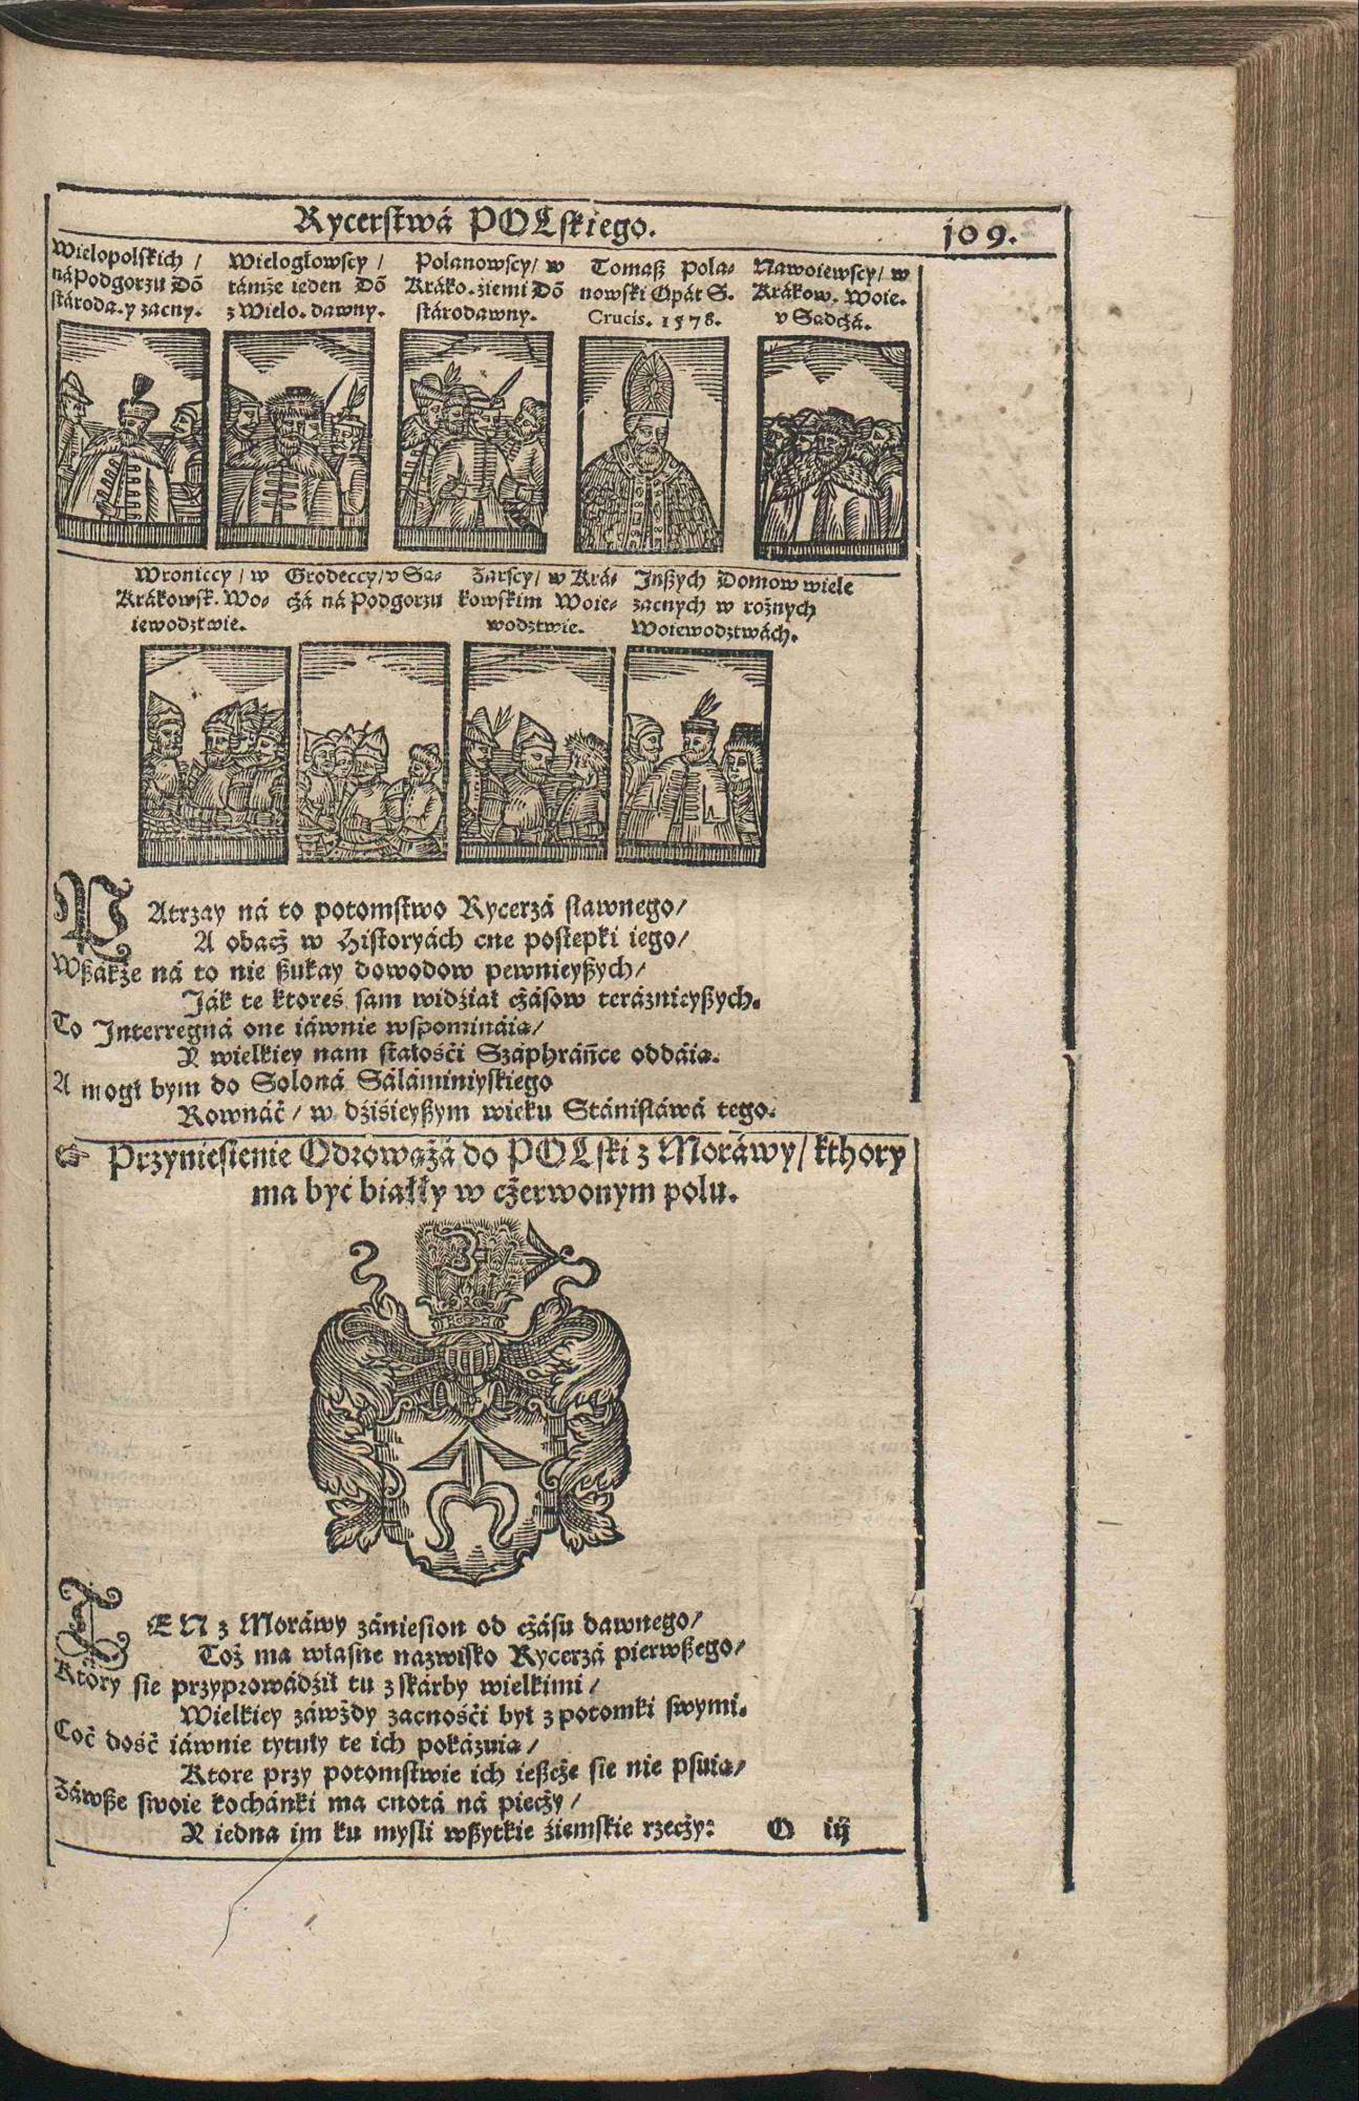 Rycerſtwá POLſkiego. 109.
Wielopolſkich /
ná Podgorzu Dõ
ſtároda. y zacny.
Wielogłowſcy /
támże ieden Dõ
z Wielo. dawny.
Polanowſcy / w
Kráko. źiemi Dõ
ſtárodawny.
Tomaß Pola⸗
nowſki Opát S.
Crucis. 1578.
Nawoiewſcy / w
Krákow. Woie.
v Sadcżá.
Wroniccy / w
Krákowſk. Wo⸗
iewodztwie.
Grodeccy / v Są⸗
cżá ná Podgorzu
Żárſcy / w Krá⸗
kowſkim Woie⸗
wodztwie.
Jnßych Domow wiele
zacnych w rożnych
Woiewodztwách.
PAtrzay ná to potomſtwo Rycerzá ſławnego /
A obacż w Hiſtoryách cne poſtepki iego /
Wßákże ná to nie ßukay dowodow pewnieyßych /
Ják te ktoreś ſam widźiał cżáſow teráznieyßych.
To Jnterregná one iáwnie wſpomináią /
Y wielkiey nam ſtałośći Száphráńce oddáią.
A mogł bym do Soloná Sáláminiyſkiego
Rownáć / w dźiśieyßym wieku Stániſłáwá tego.
☞ Przynieſienie Odrowążá do POLſki z Moráwy / kthory
ma być białły w cżerwonym polu.
TEN z Moráwy zánieſion od cżáſu dawnego /
Toż ma własne nazwiſko Rycerzá pierwßego /
Ktory ſie przyprowádźił tu z ſkárby wielkimi /
Wielkiey záwżdy zacnośći był z potomki ſwymi.
Coć dość iáwnie tytuły te ich pokázuią /
Ktore przy potomſtwie ich ießcże ſie nie pſuią /
Záwße ſwoie kochánki ma cnotá ná piecży /
Y iedna im ku myſli wßytkie źiemſkie rzecży: O iij